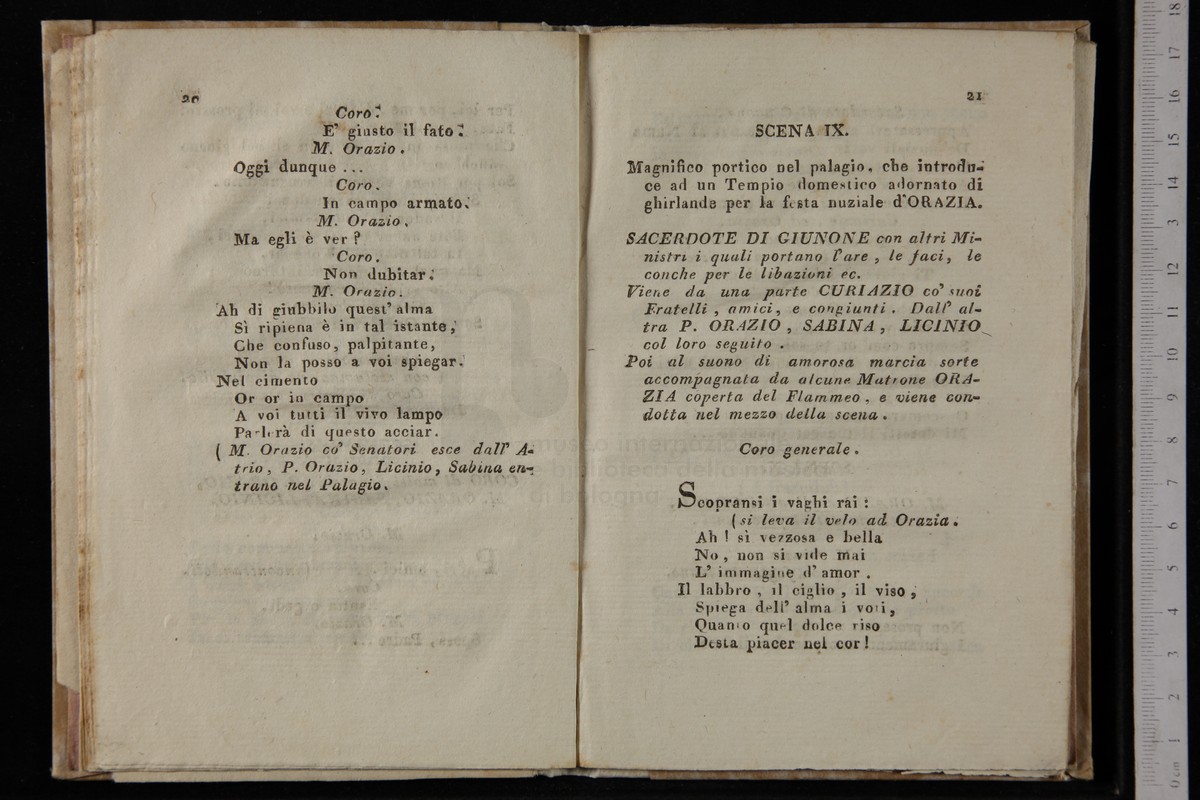 20
Coro.
E' giusto il fato.
M. Orazio.
Oggi dunque ...
Coro.
In campo armato.
M. Orazio.
Ma egli è ver?
Coro.
Non dubitar.
M. Orazio.
Ah di giubbilo quest' alma
Sì ripiena è in tal istante,
Che confuso, palpitante,
Non la posso a voi spiegar.
Nel cimento
Or or in campo
A voi tutti il vivo lampo
Parlerà di questo acciar.
( M. Orazio co' Senatori esce dall' A-
trio, P. Orazio, Licinio, Sabina en-
trano nel Palagio.
21
SCENA IX.
Magnifico portico nel palagio, che introdu-
ce ad un Tempio domestico adornato di
ghirlande per la festa nuziale d'ORAZIA.
SACERDOTE DI GIUNONE con altri Mi-
nistri i quali portano l'are, le faci, le
conche per le libazioni ec.
Viene da una parte CURIAZIO co' suoi
Fratelli, amici, e congiunti. Dall' al-
tra P. ORAZIO, SABINA, LICINIO
col loro seguito.
Poi al suono di amorosa marcia sorte
accompagnata da alcune Matrone ORA-
ZIA coperta del Flammeo, e viene con-
dotta nel mezzo della scena.
Coro generale.
Scopransi i vaghi rai:
(si leva il velo ad Orazia.
Ah! sì vezzosa e bella
No, non si vide mai
L' immagine d' amor.
Il labbro, il ciglio, il viso,
Spiega dell' alma i voti,
Quanto quel dolce riso
Desta piacer nel cor!
museo internazionale
e biblioteca della musica
di bologna
0 cm 1 2 3 4 5 6 7 8 9 10 11 12 13 14 15 16 17 18